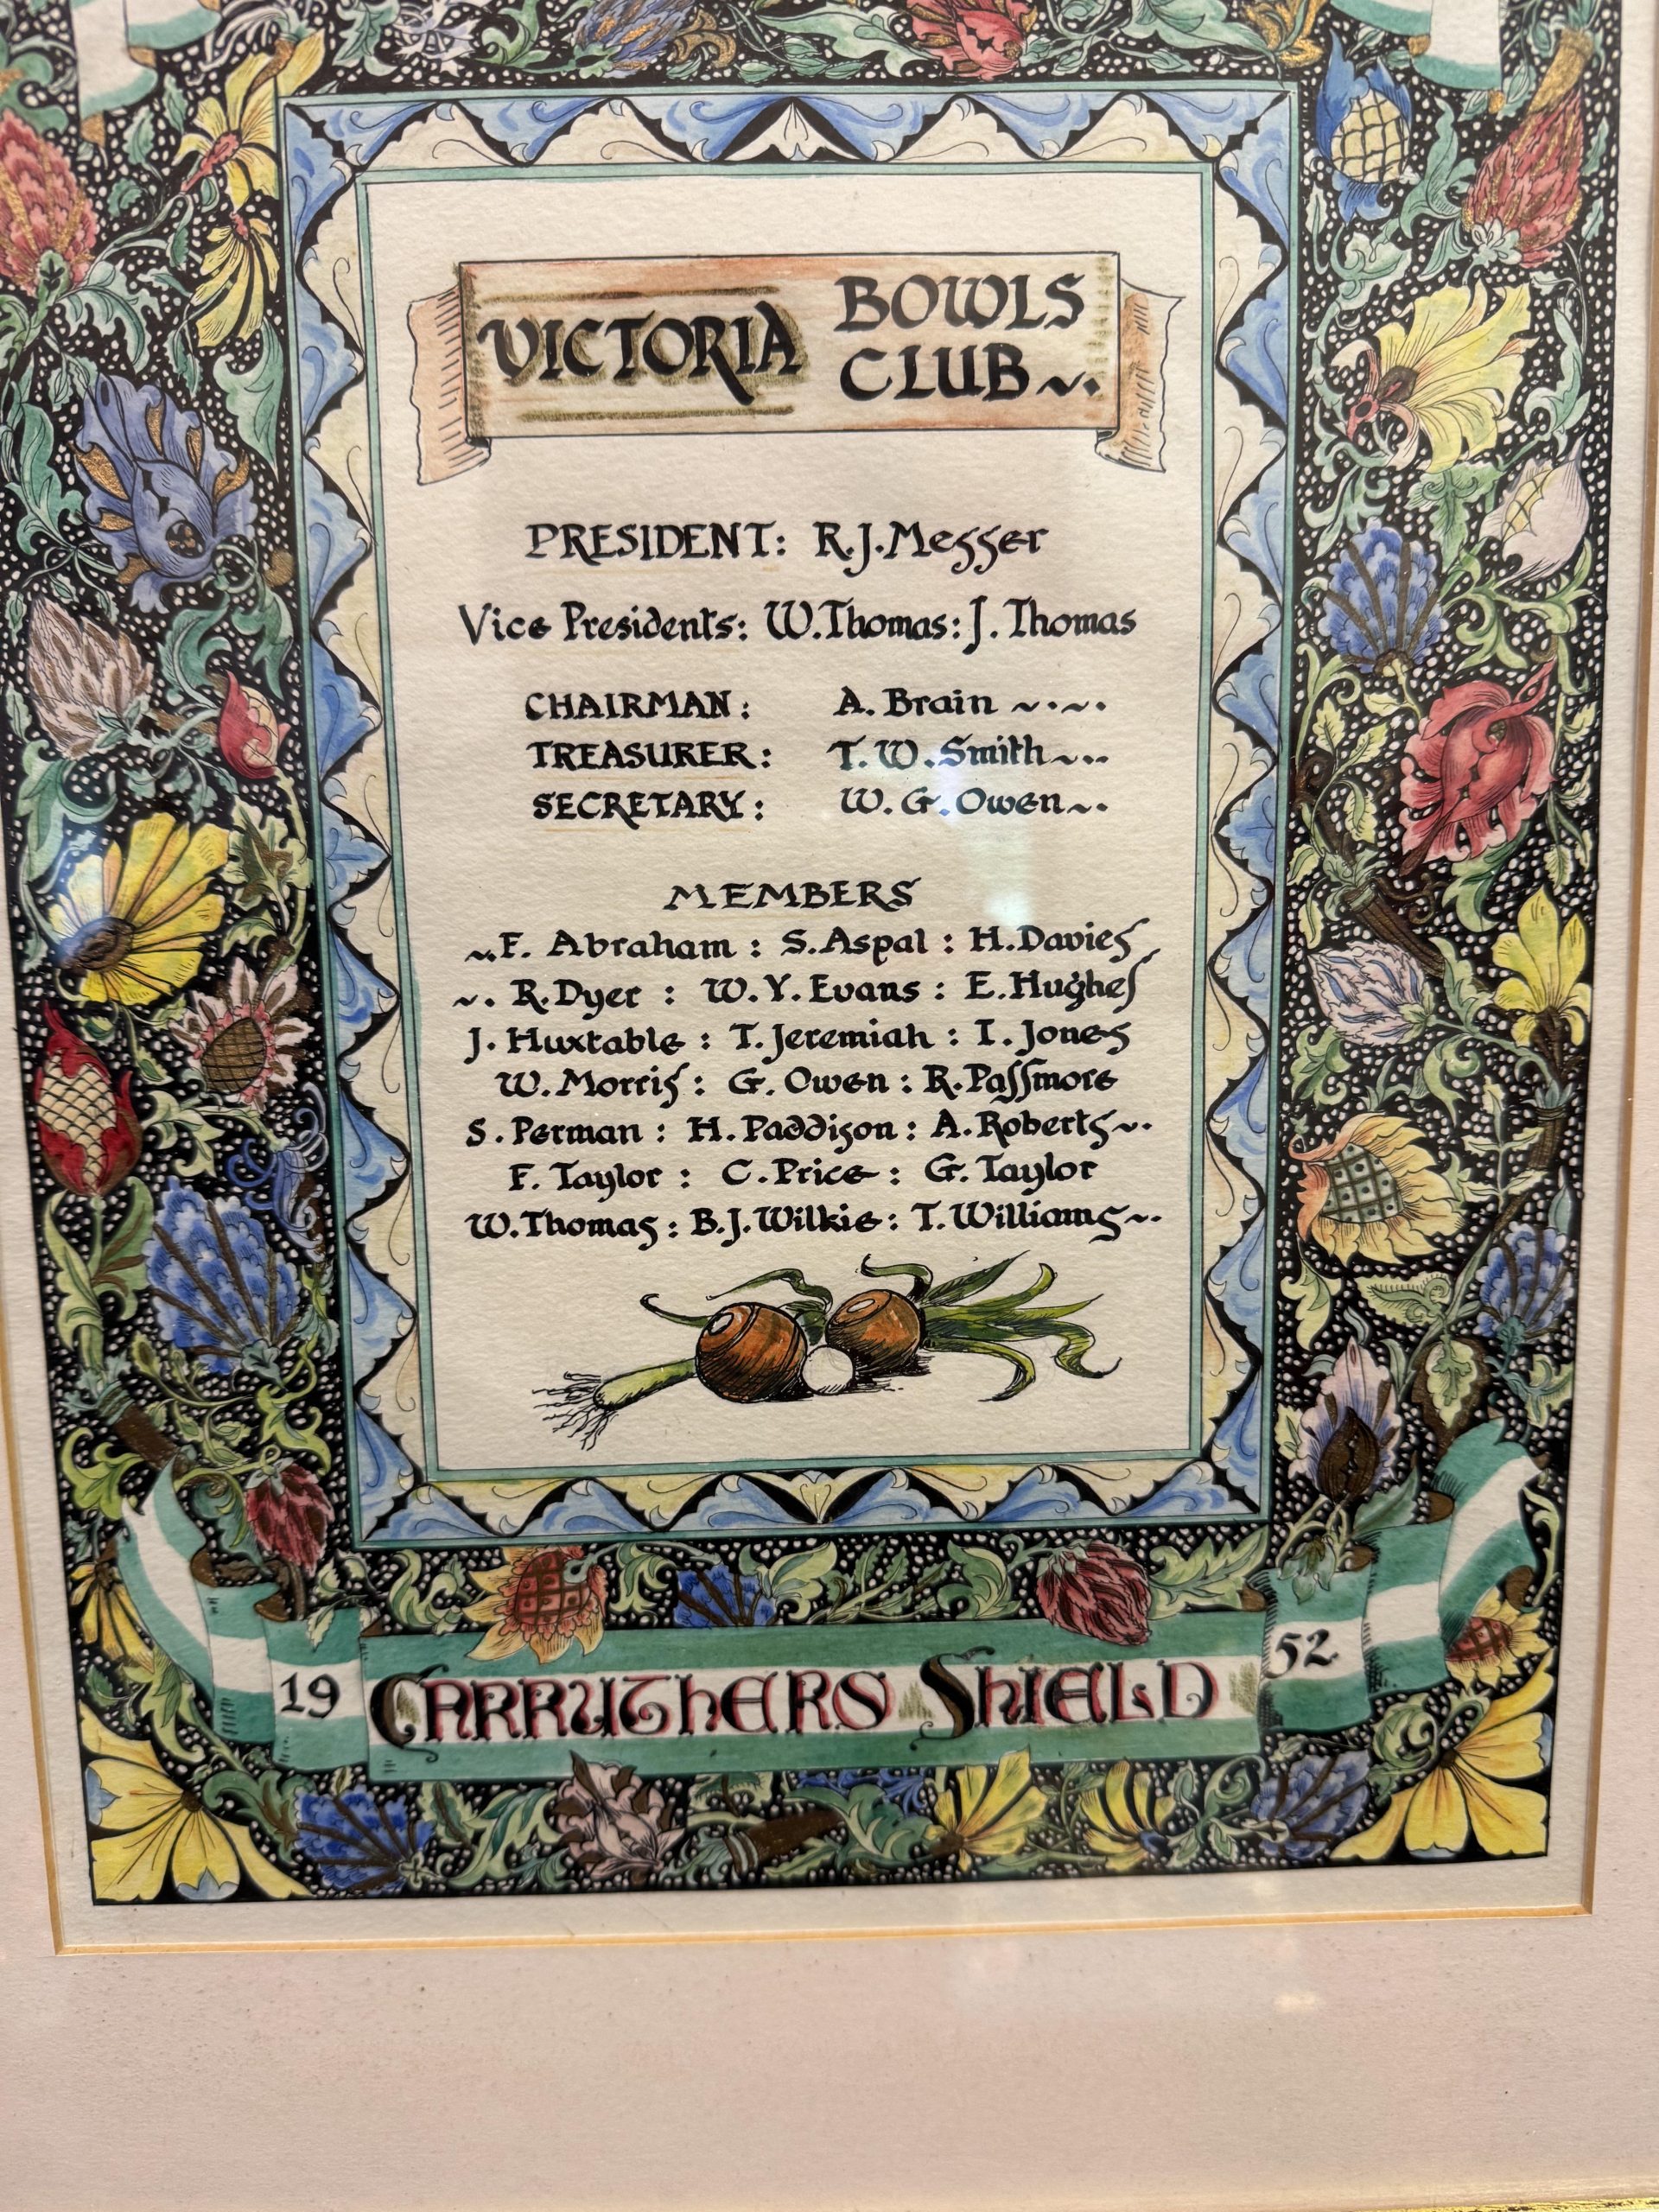 VICTORIA BOWLS
CLUB~.
PRESIDENT: R.J.Messer
Vice Presidents: W.Thomas: J. Thomas
CHAIRMAN: A. Brain ~.~.
TREASURER: T. W. Smith~..
SECRETARY: W. G. Owen~.
MEMBERS
~.F. Abraham : S. Aspal : H. Davies
~. R. Dyer : W. Y. Evans : E. Hughes
J. Huxtable : T. Jeremiah : I. Jones
W. Morris : G. Owen : R. Passmore
S. Perman : H. Paddison : A. Roberts~.
F. Taylor : C. Price : G. Taylor
W. Thomas : B. J. Wilkie : T. Williams~.
19 CARRUTHERS SHIELD 52